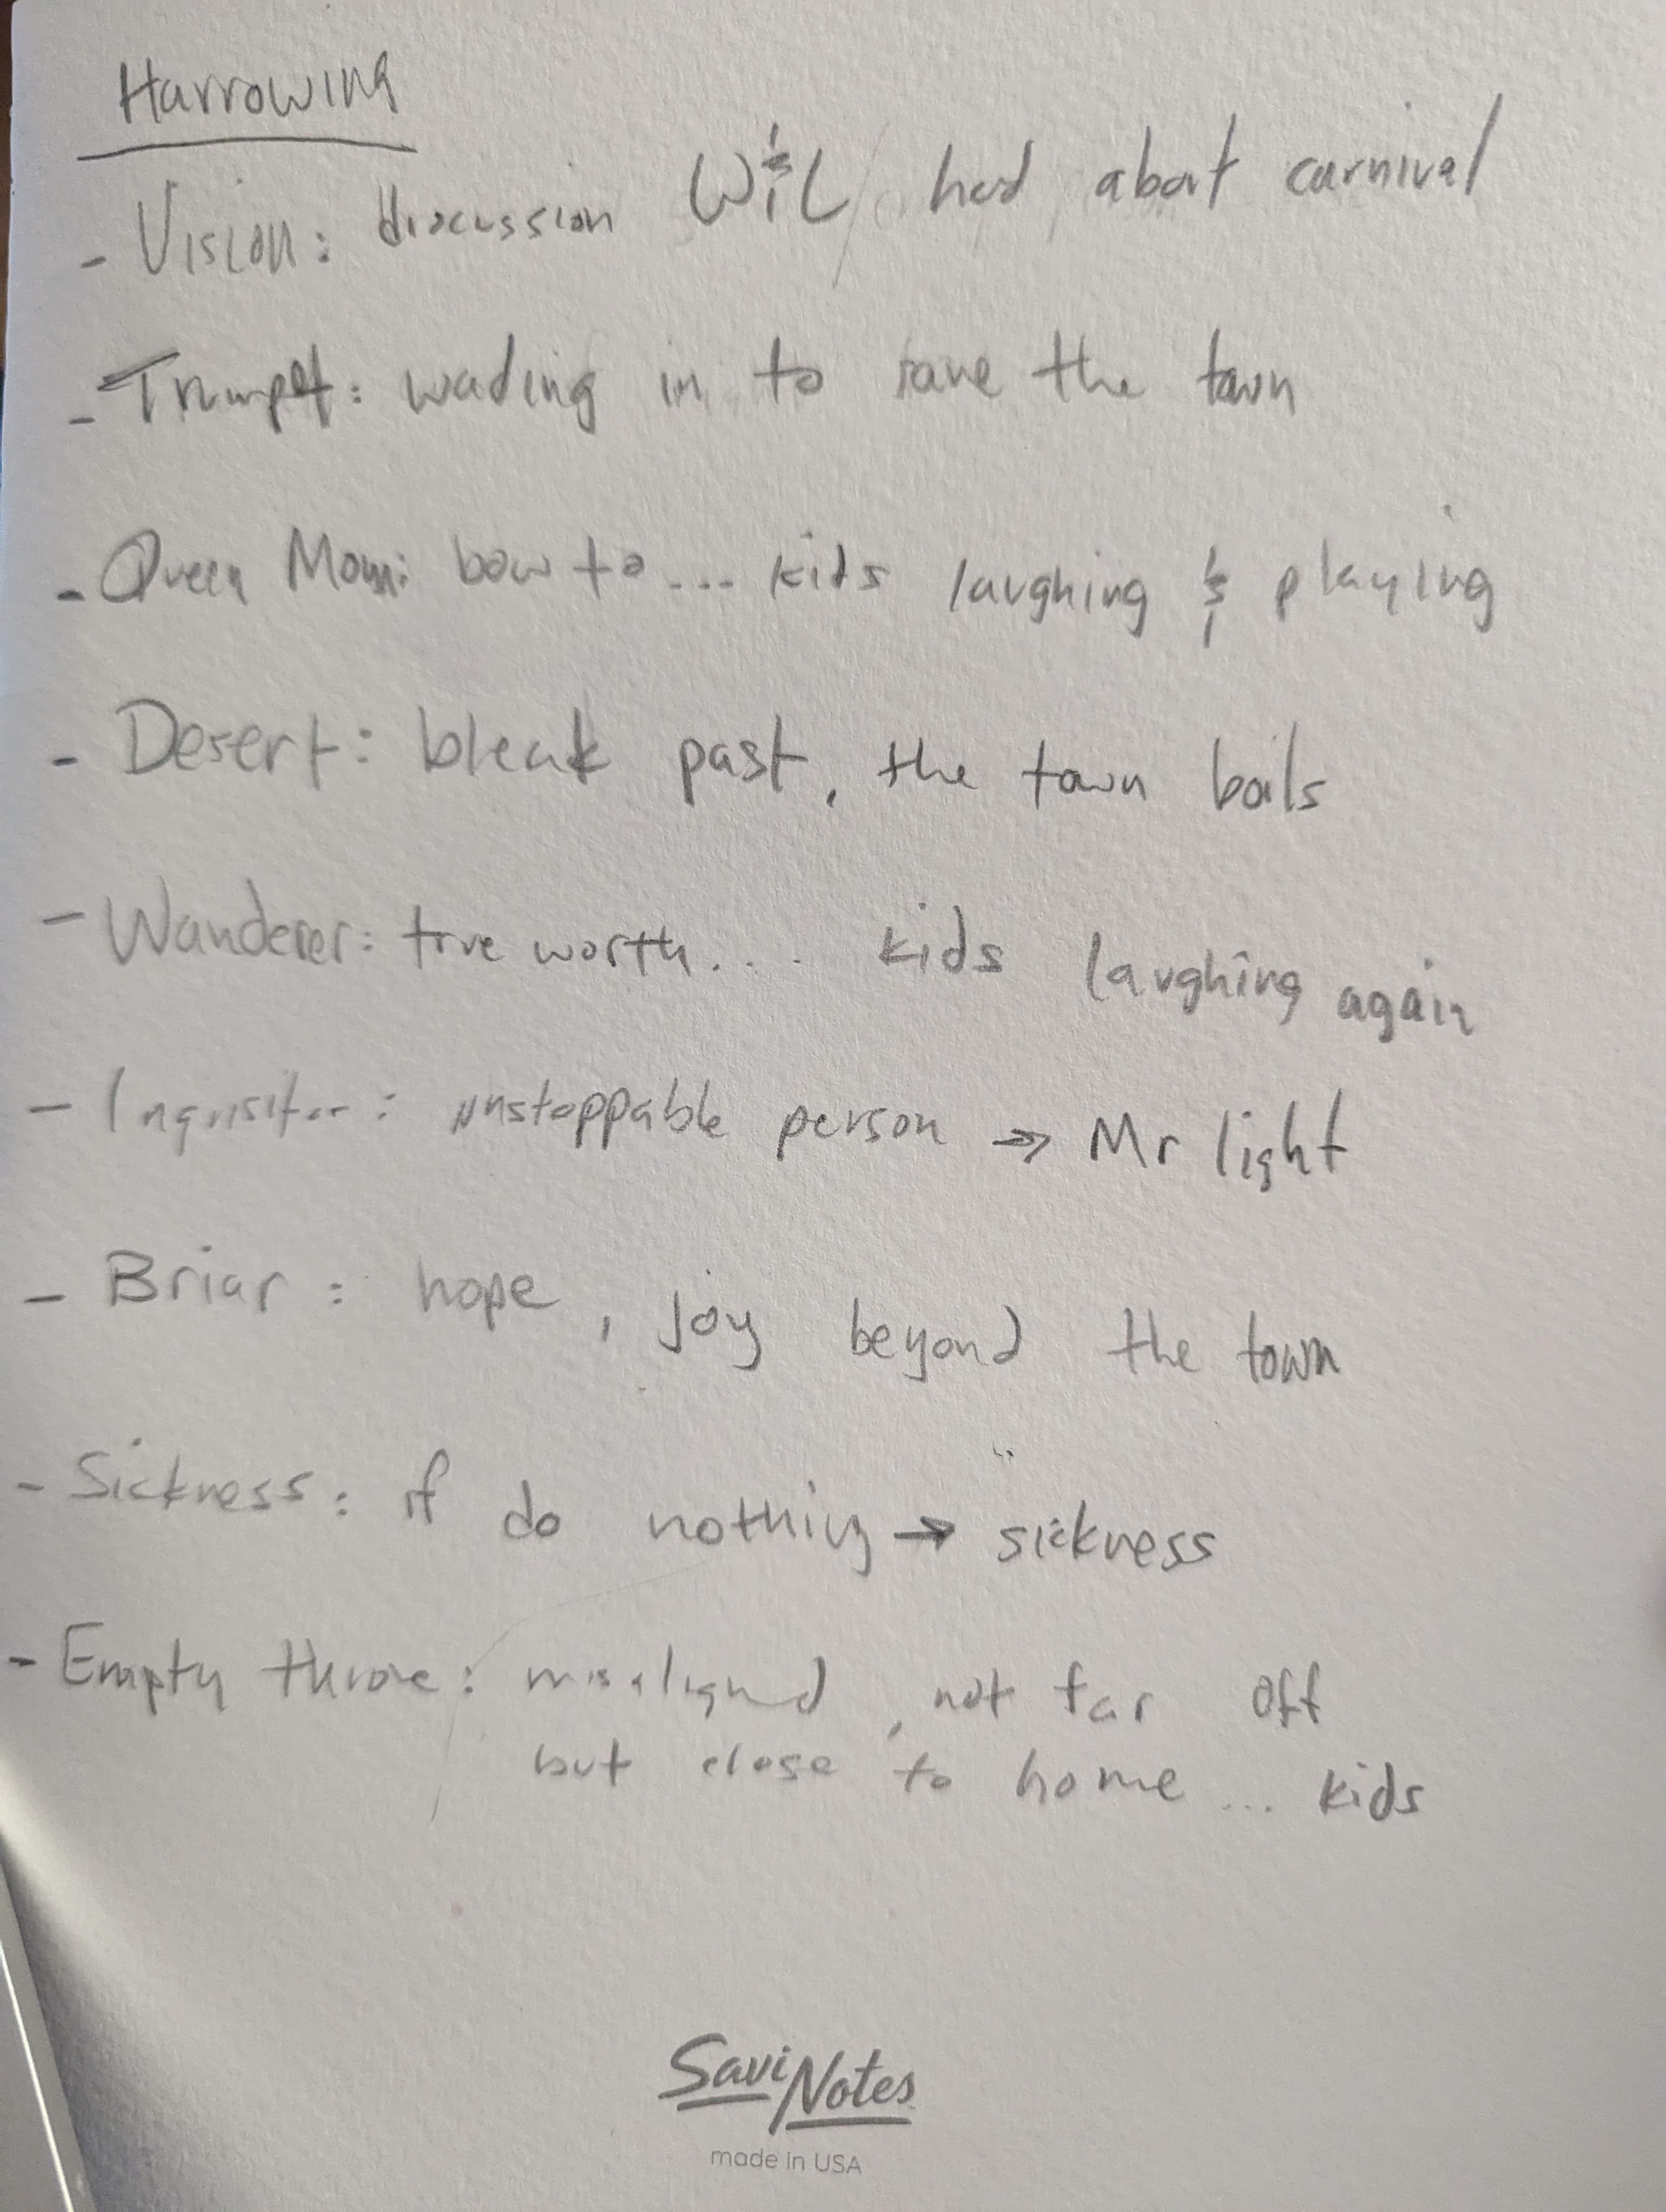 Harrowing
- Vision: discussion W&L had about carnival
- Trumpet: wading in to save the town
- Queen Mom: bow to... kids laughing & playing
- Desert: bleak past, the town boils
- Wanderer: true worth... kids laughing again
- Inquisitor: unstoppable person → Mr light
- Briar: hope, joy beyond the town
- Sickness: if do nothing → sickness
- Empty throne: misaligned, not far off
but close to home... kids
SaviNotes
made in USA